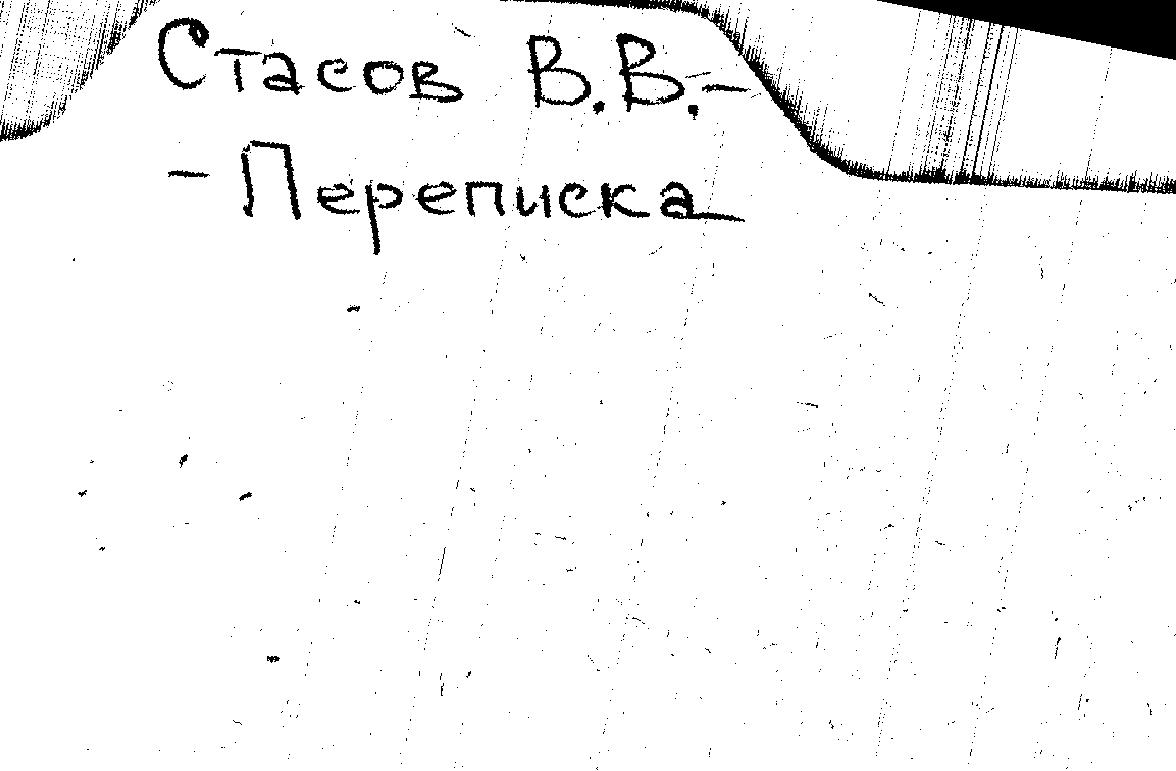 Стасов В.В.-
- Переписка